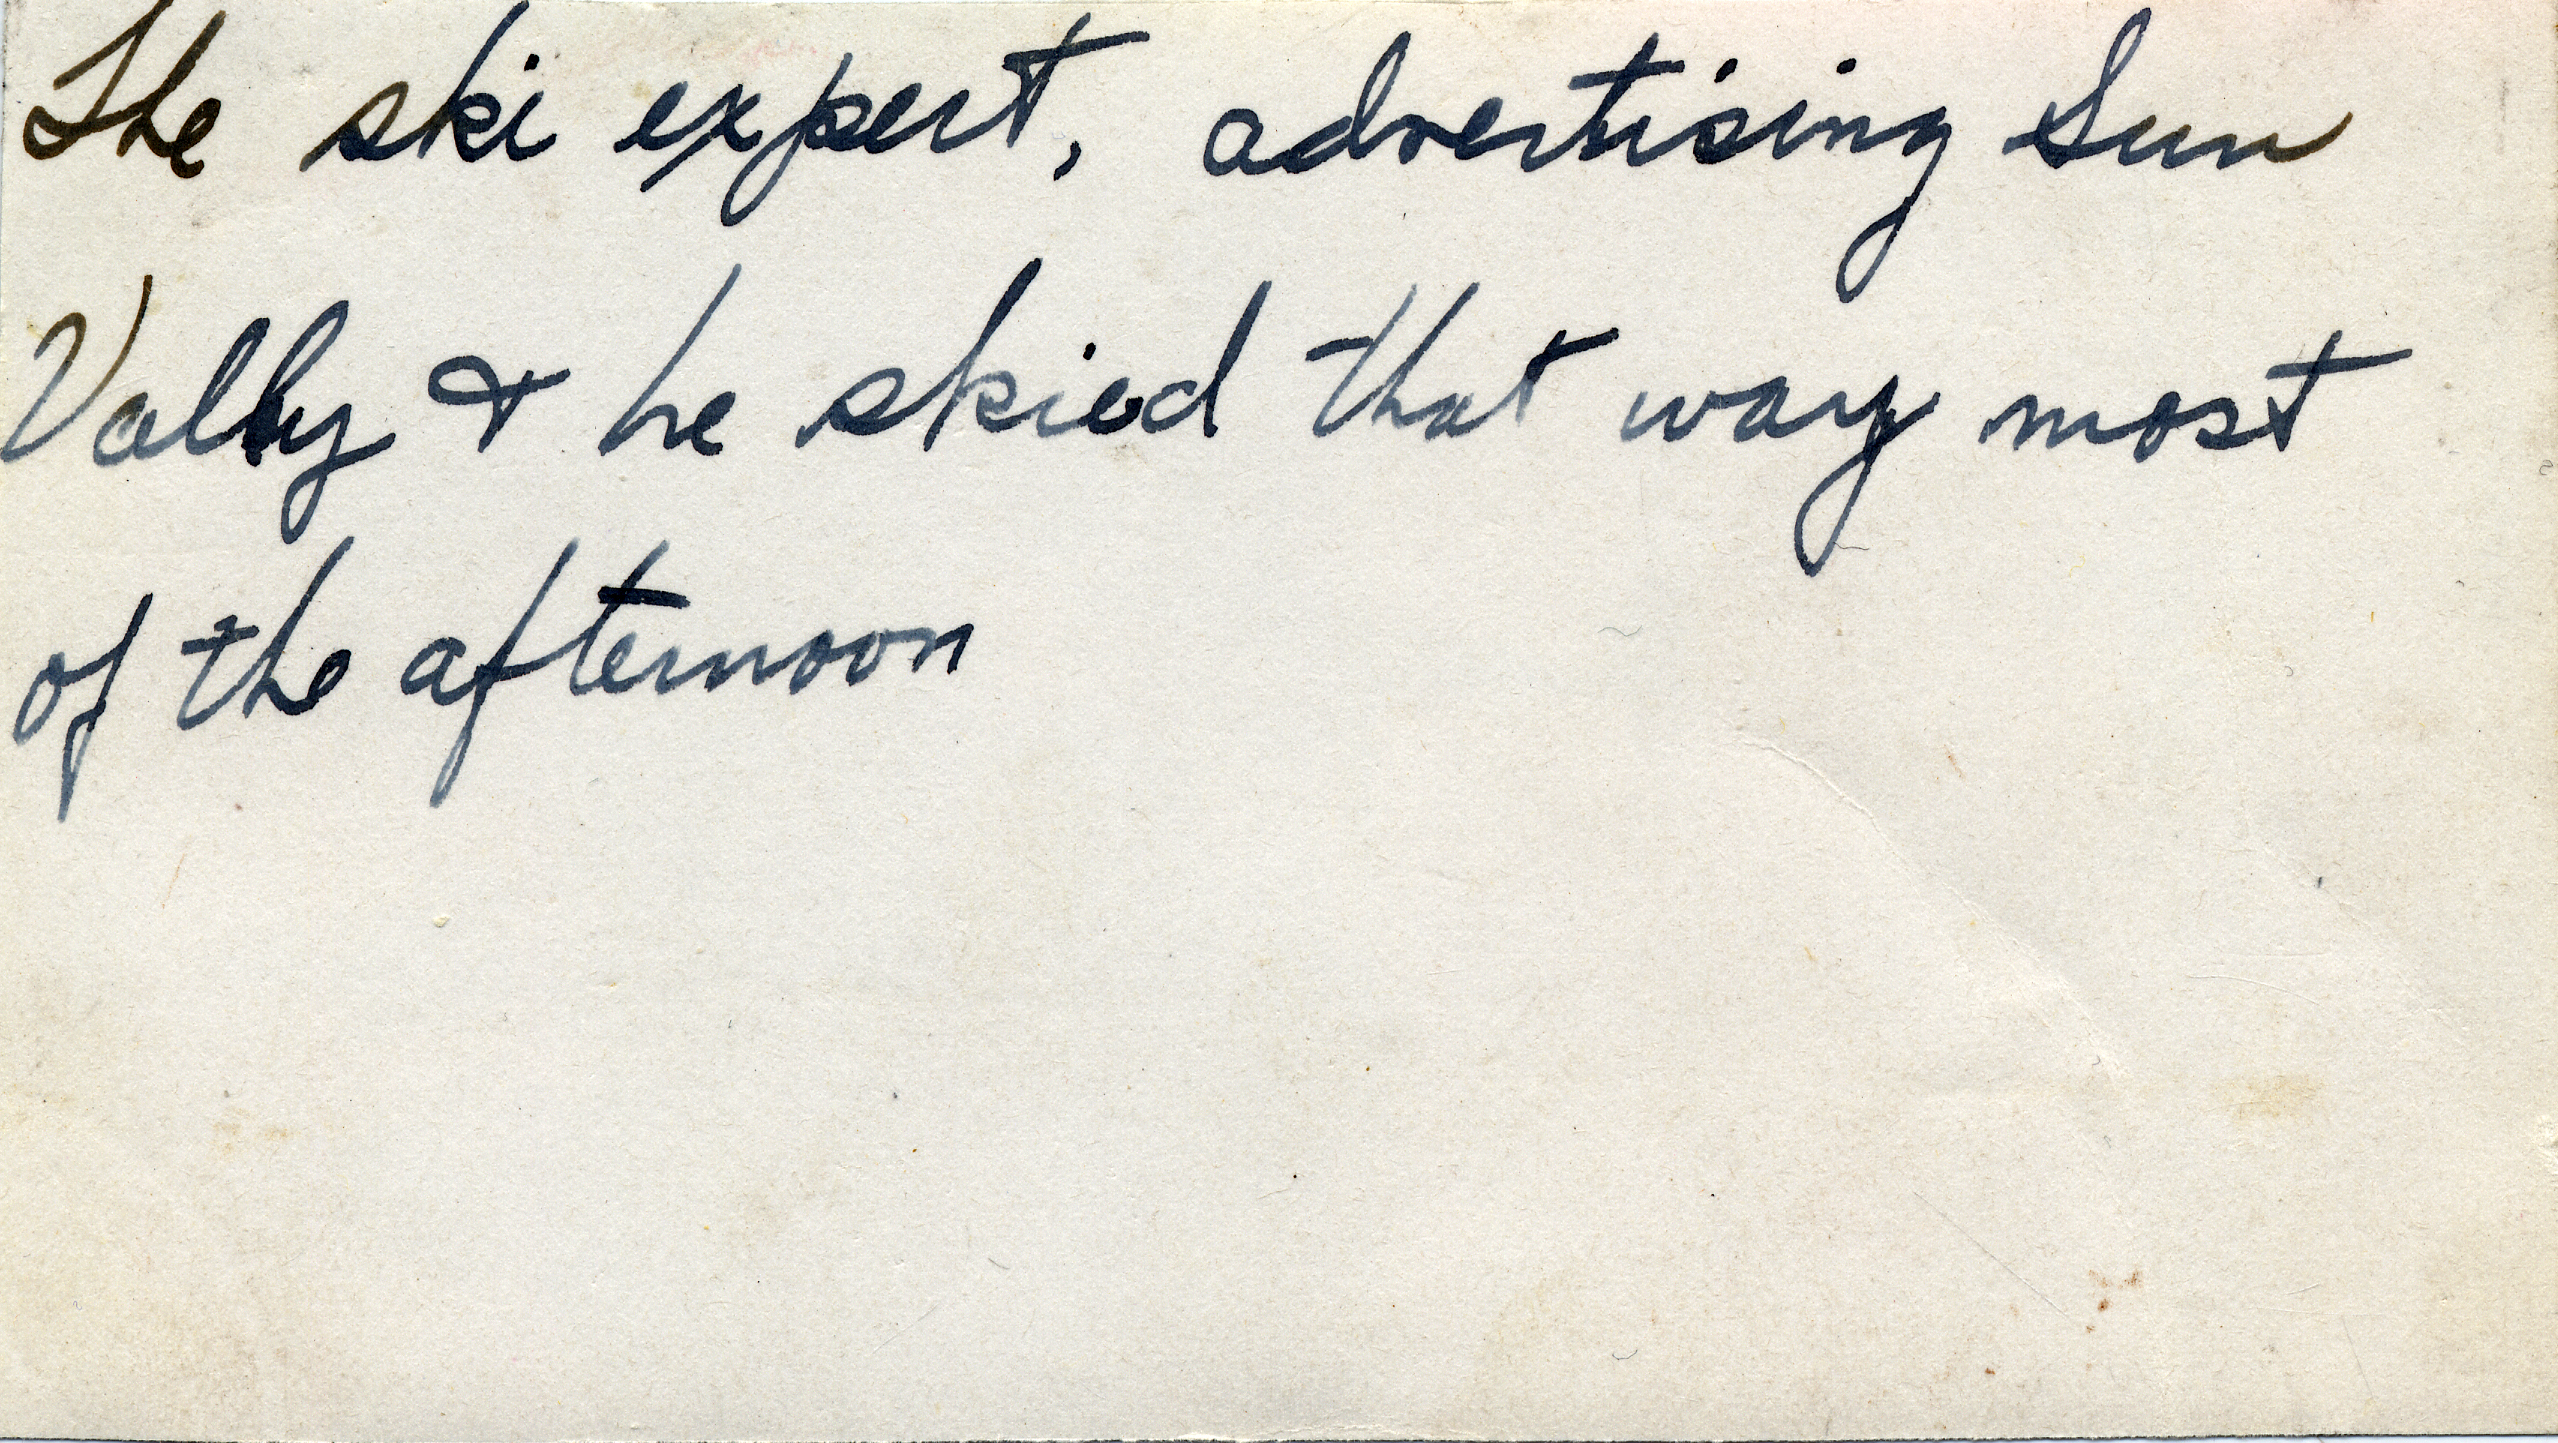 The ski expert, advertising Sun
Valley & he skied that way most
of the afternoon